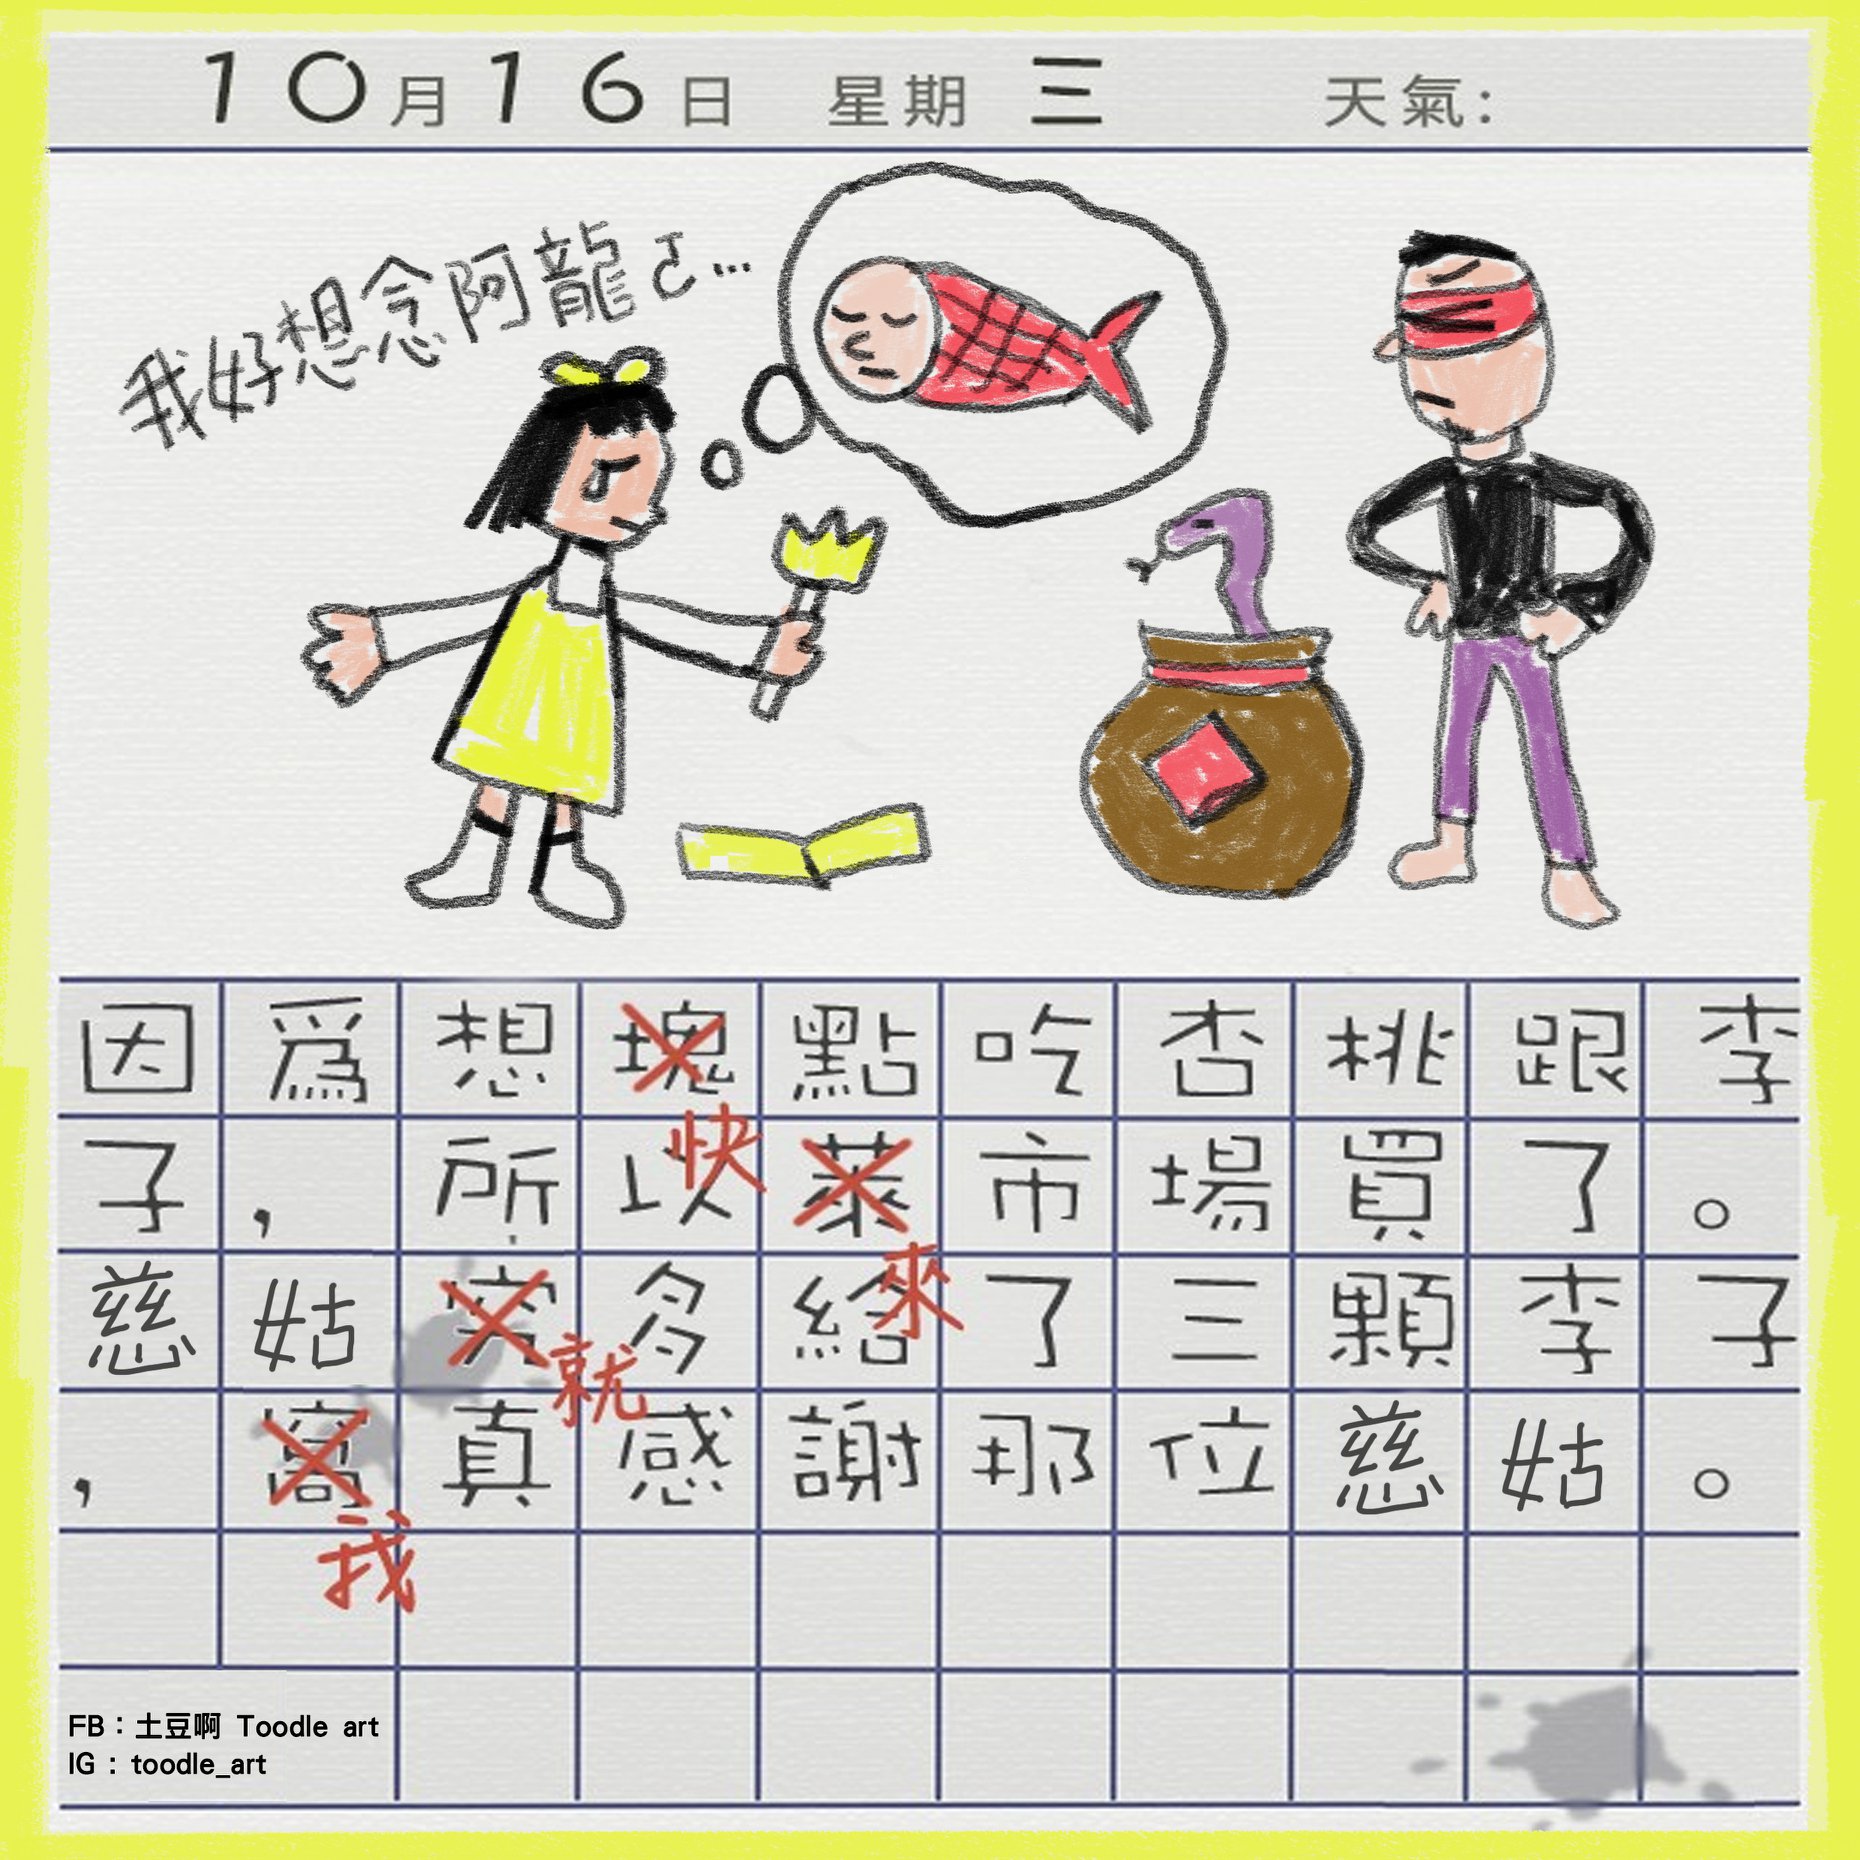 10月16日 星期三 天氣:
我好想念阿龍ㄛ...
因爲想塊點吃杏桃跟李
快
子，所以萊市場買了。
來
慈姑究多給了三顆李子
就
，窩真感謝那位慈姑。
我
FB：土豆啊 Toodle art
IG：toodle_art